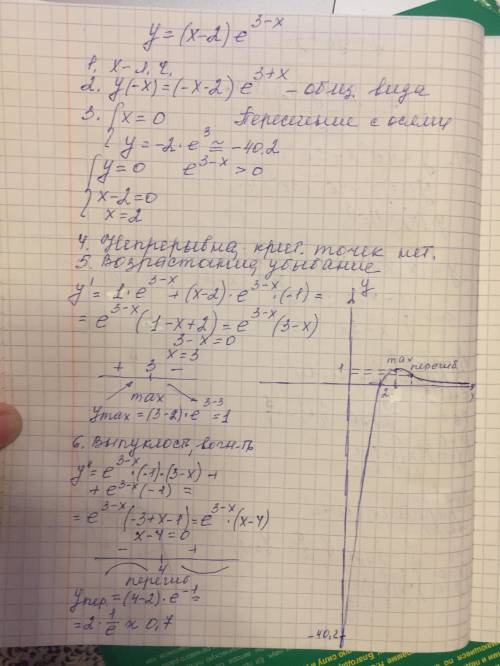 y = (x-2) e^{3-x}
1. x - л. ч.
2. y(-x) = (-x-2) e^{3+x} - общ. вида
3. { x = 0 Пересечение с осями
y = -2·e^3 ≅ -40.2
{ y = 0 e^{3-x} > 0
x-2=0
x=2
4. Непрерывна, крит. точек нет.
5. Возрастание, убывание
y' = 1·e^{3-x} + (x-2)·e^{3-x}·(-1) =
= e^{3-x} (1-x+2) = e^{3-x} (3-x)
3-x=0
x=3
+ 3 -
max
y_{max} = (3-2)·e^{3-3} = 1
6. Выпуклость, вогн-ть
y'' = e^{3-x}·(-1)·(3-x) +
+ e^{3-x}(-1) =
= e^{3-x} (-3+x-1) = e^{3-x}·(x-4)
x-4=0
- +
4
перегиб
y_{пер.} = (4-2)·e^{-1} =
= 2·\frac{1}{e} ≈ 0,7
y
max
перегиб
1
2
-40,2